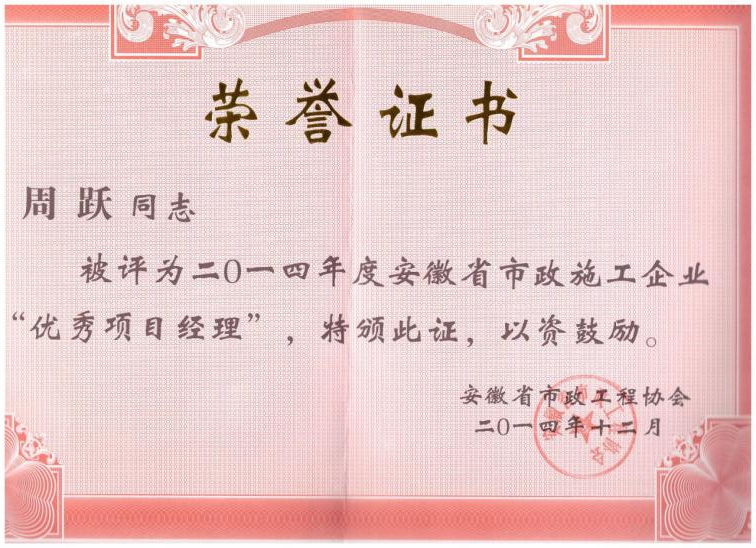 荣誉证书
周跃 同志
被评为二〇一四年度安徽省市政施工企业
“优秀项目经理”，特颁此证，以资鼓励。
安徽省市政工程协会
二〇一四年十二月